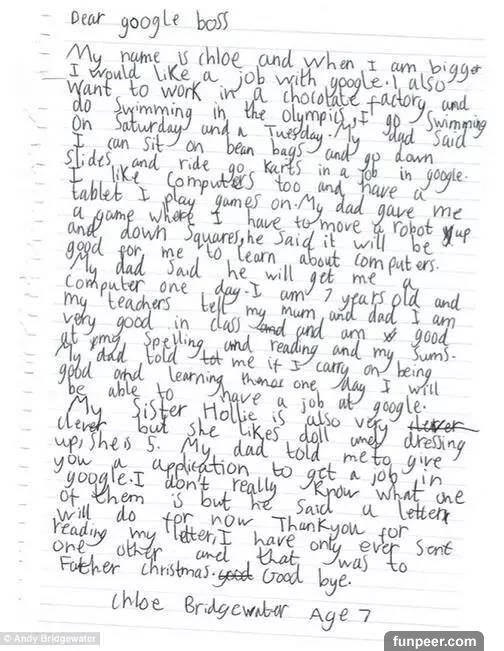 Dear google boss
My name is chloe and when I am bigger
I would like a job with google. I also
want to work in a chocolate factory and
do swimming in the olympics, I go swimming
on Saturday and a Tuesday. My dad said
I can sit on bean bags and go down
slides and ride go karts in a job in google.
I like computers too and have a
tablet I play games on. My dad gave me
a game where I have to move a robot up
and down squares, he said it will be
good for me to learn about computers.
My dad said he will get me a
computer one day. I am 7 years old and
my teachers tell my mum and dad I am
very good in class and and am good
at my spelling and reading and my sums.
My dad told me if I carry on being
good and learning one day I will
be able to have a job at google.
My sister Hollie is also very
clever but she likes doll and dressing
up, she is 5. My dad told me to give
you a application to get a job in
google. I don't really know what one
of them is but he said a letter
will do for now Thankyou for
reading my letter, I have only ever sent
one other and that was to
Father christmas. good Good bye.
Chloe Bridgewater Age 7
© Andy Bridgewater
funpeer.com